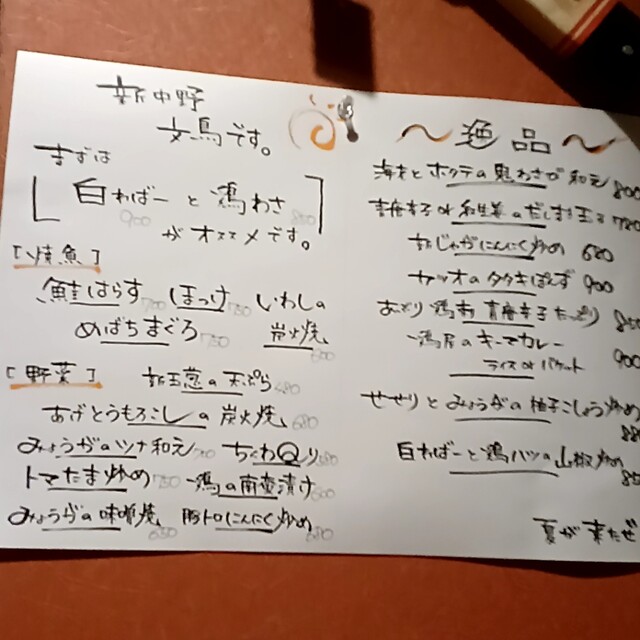 新中野
文鳥です。
まずは
白ればーと鶏わさ
900
がオススメです。
[焼魚]
鮭はらす 700 ほっけ 750 いわしの
めばちまぐろ 750 炭火焼
600
[野菜] 新玉葱の天ぷら 480
あげとうもろこしの炭火焼 680
みょうがのツナ和え ちくわQり
トマたま炒め 750 鶏の南蛮漬け 600
みょうがの味噌焼 豚トロにんにく炒め
650 680
〜絶品〜
ホタテの 和え 800
青唐辛子or のだしまき玉子 780
新じゃがにんにく炒め 680
カツオのタタキぽん酢 900
あっさり鶏刺 青唐辛子たっぷり 850
鶏屋のキーマカレー
ライスorバケット 900
せせりとみょうがの柚子こしょう炒め
880
白ればーと鶏ハツの山椒炒め
夏が来たぜ